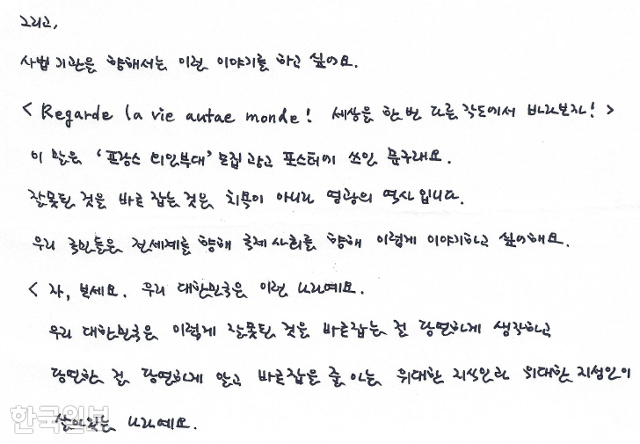 그리고,
사법기관을 향해서는 이런 이야기를 하고 싶어요.
< Regarde la vie autae monde! 세상을 한 번 다른 각도에서 바라보자! >
이 말은 '프랑스 외인부대' 모집 광고 포스터에 쓰인 문구래요.
잘못된 것을 바로 잡는 것은 치욕이 아니라 영광의 역사입니다.
우리 국민들은 전세계를 향해 국제사회를 향해 이렇게 이야기하고 싶어해요.
< 자, 보세요. 우리 대한민국은 이런 나라예요.
우리 대한민국은 이렇게 잘못된 것을 바로잡는 걸 당연하게 생각하고
당연한 걸 당연하게 알고 바로잡을 줄 아는 위대한 지식인과 위대한 지성인이
살아있는 나라예요.
한국일보